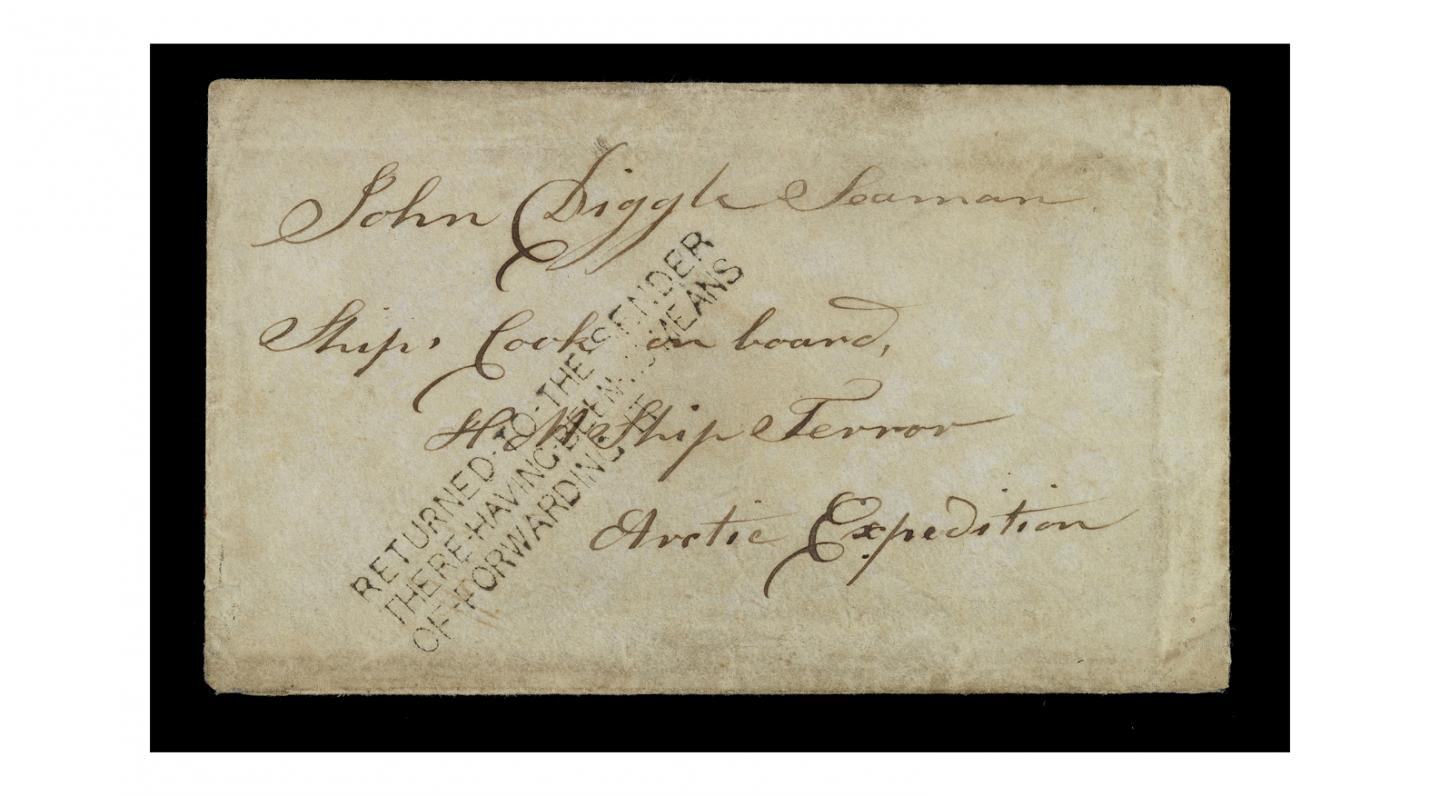 John Diggle Seaman
Ship's Cook on board,
H.M. Ship Terror
Arctic Expedition
RETURNED-TO-THE-SENDER
THERE-HAVING-BEEN-NO-MEANS
OF-FORWARDING-IT